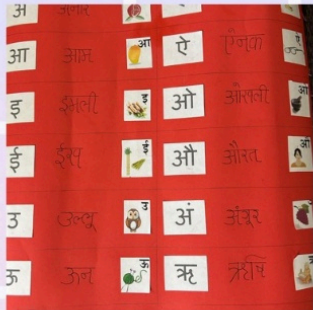 अ अनार
आ आम आ ऐ ऐनक ऐ
इ इमली इ ओ ओखली
ई ईख ई औ औरत औ
उ उल्लू उ अं अंगूर
ऊ ऊन ऊ ऋ ऋषि